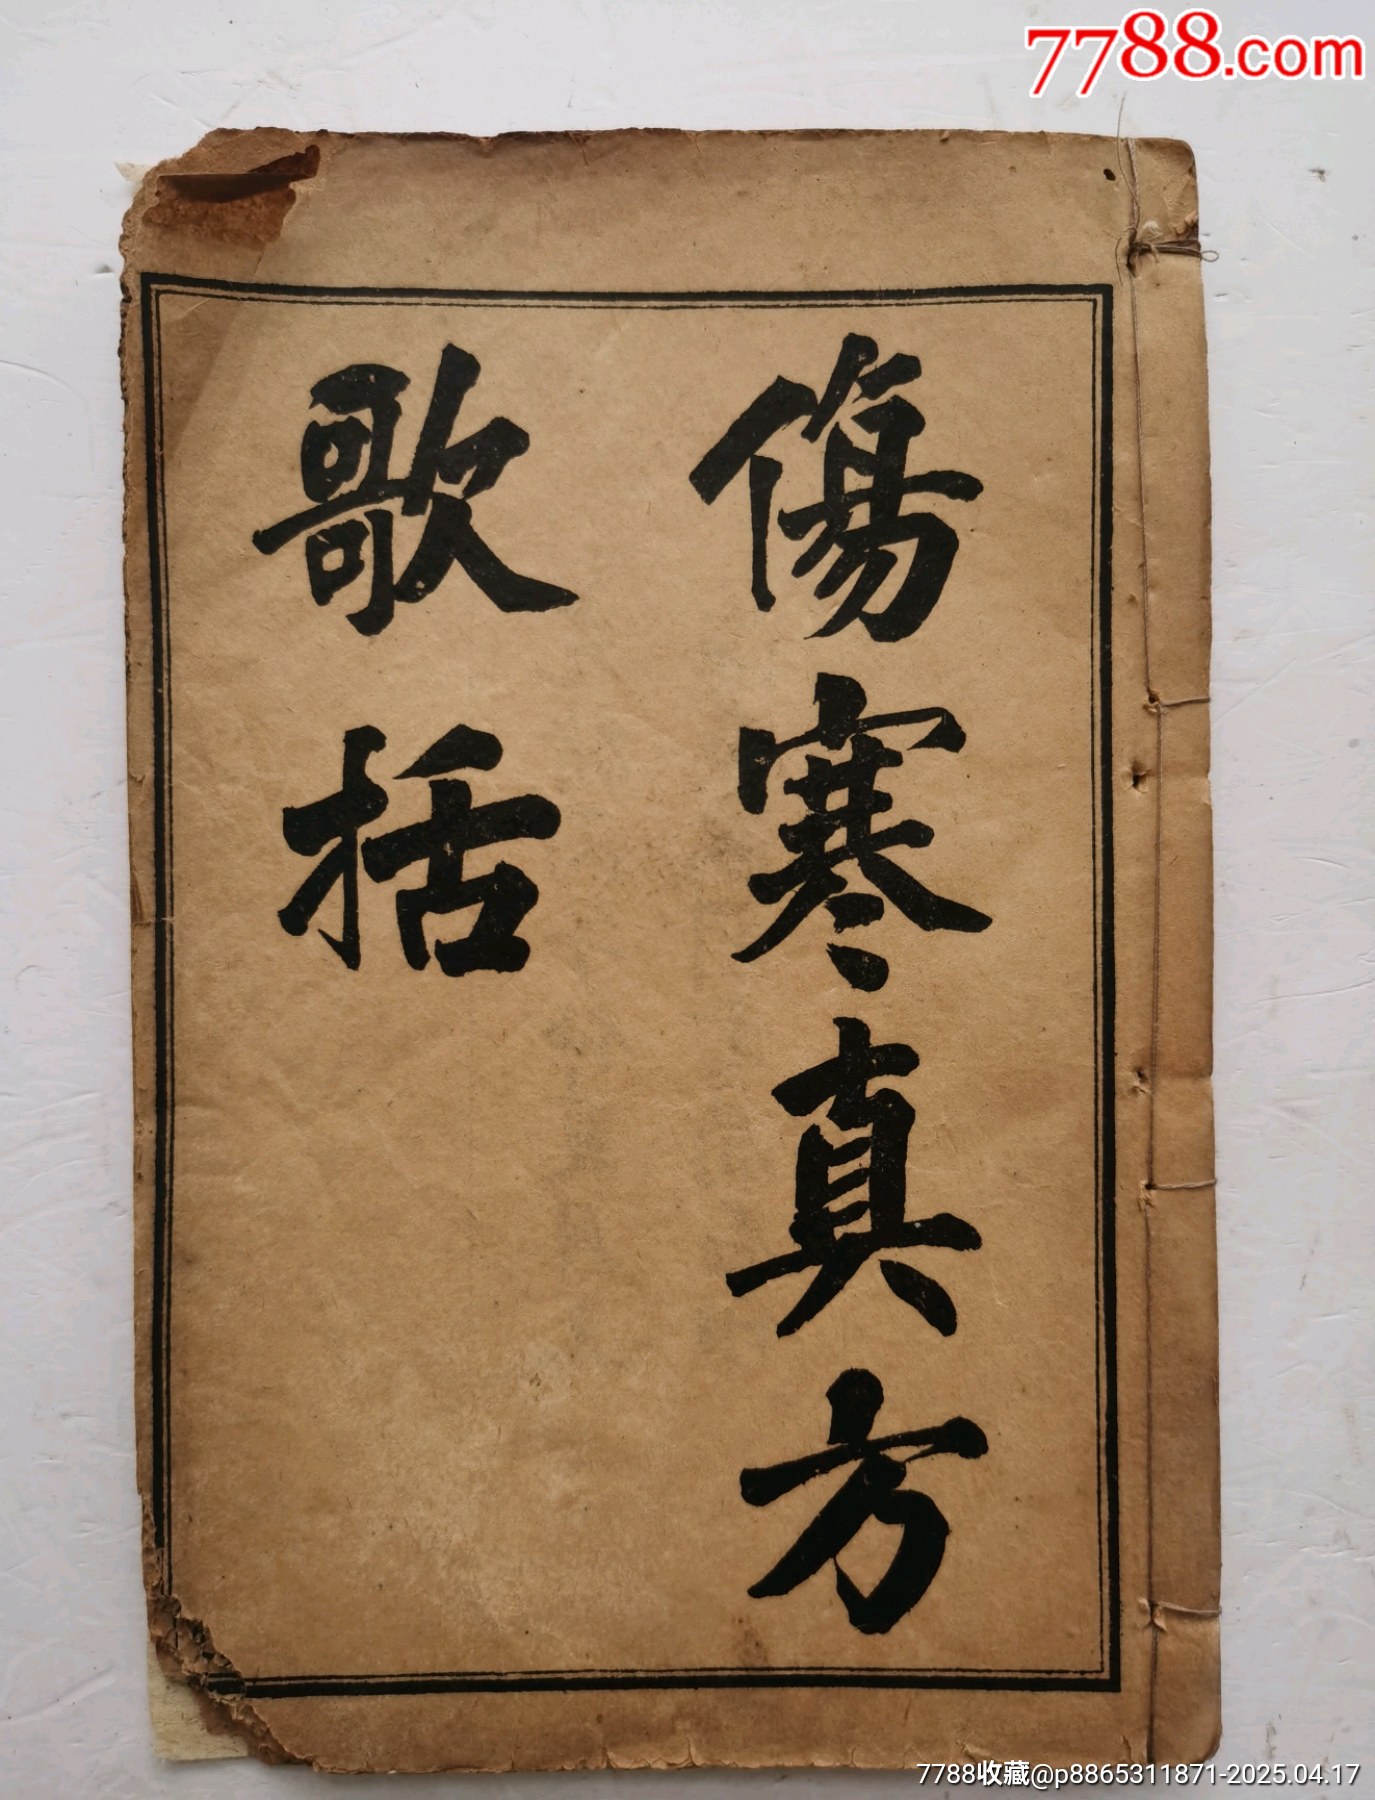 7788.com
傷寒真方
歌括
7788收藏@p8865311871-2025.04.17